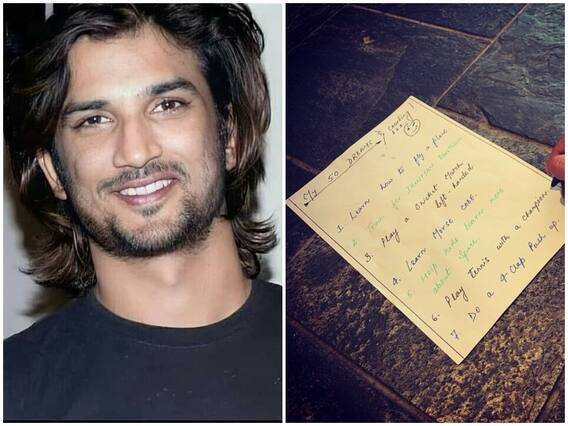 My 50 DREAMS & counting!
...
1. Learn how to fly a plane
2. Train for IRONMAN triathlon
3. Play a Cricket Match
left-handed
4. Learn Morse Code.
5. Help kids learn more
about Space.
6. Play Tennis with a Champion
7. Do a 4-Clap Push up.